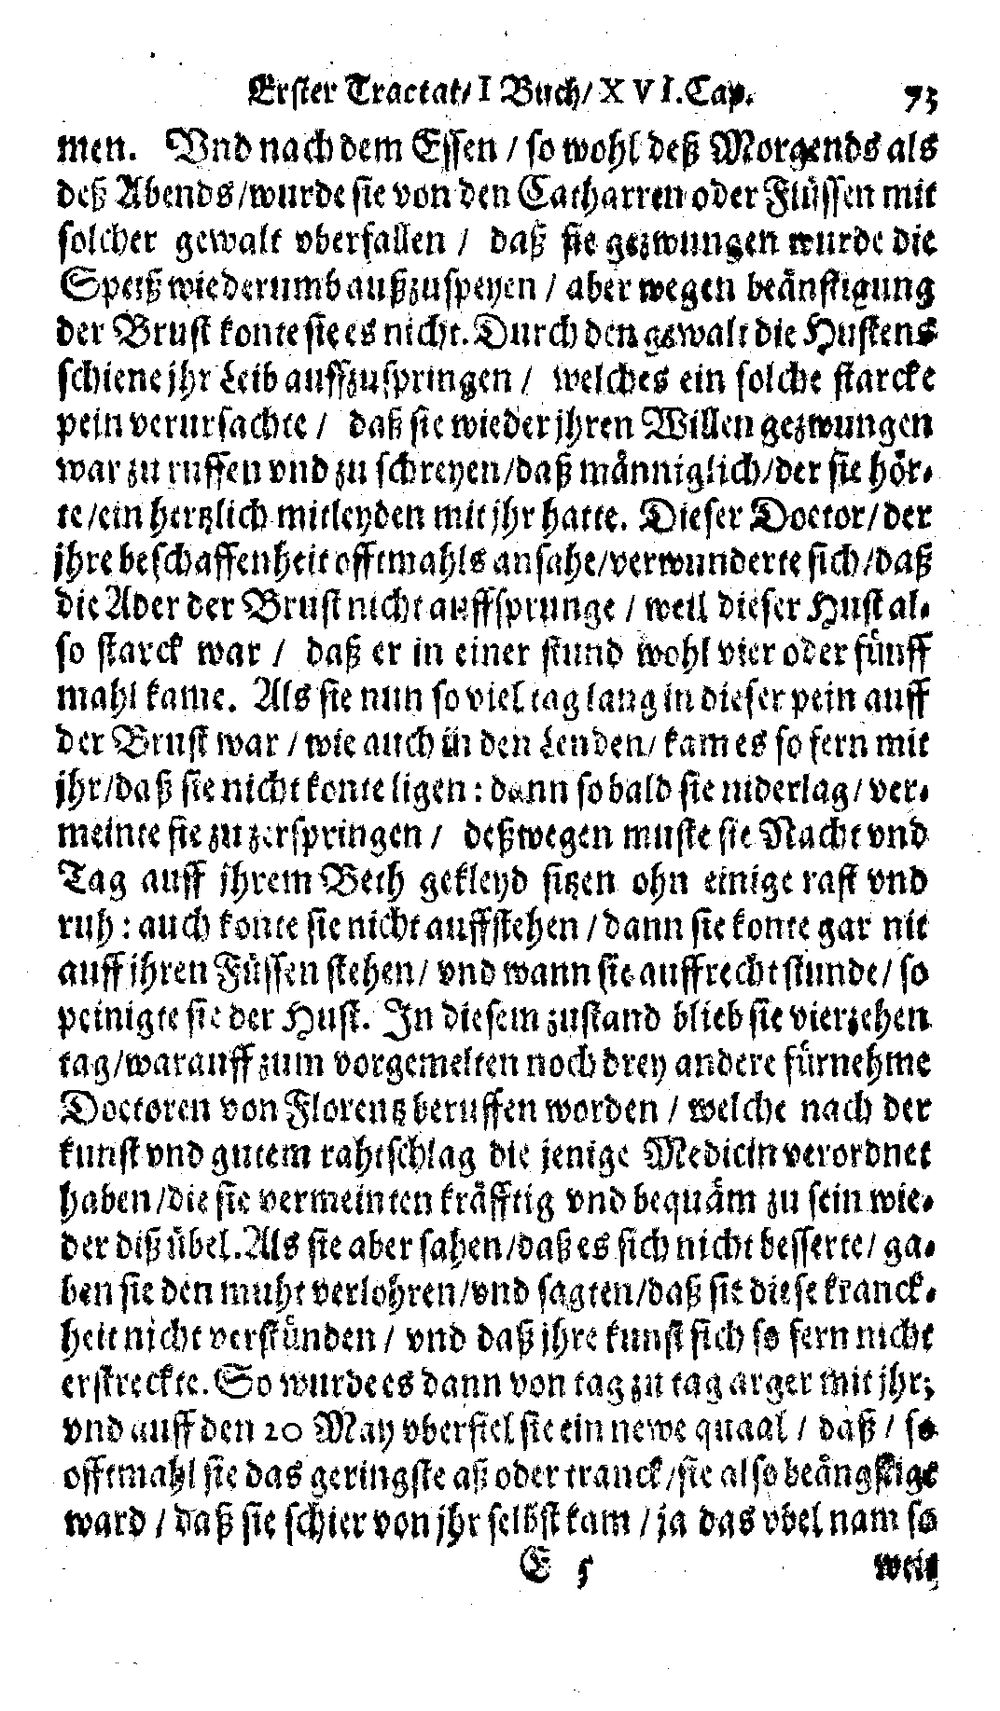 Erster Tractat/ I Buch/ XVI. Cap. 73
men. Vnd nach dem Essen / so wohl deß Morgends als
deß Abends/wurde sie von den Catharren oder Flüssen mit
solcher gewalt vberfallen / daß sie gezwungen wurde die
Speiß wiederumb außzuspeyen / aber wegen beänstigung
der Brust konte sie es nicht. Durch den gewalt die Hustens
schiene jhr Leib auffzuspringen / welches ein solche starcke
pein verursachte / daß sie wieder jhren Willen gezwungen
war zu ruffen vnd zu schreyen/daß männiglich/der sie hör-
te/ein hertzlich mitleyden mit jhr hatte. Dieser Doctor/der
jhre beschaffenheit offtmahls ansahe/verwunderte sich/daß
die Ader der Brust nicht auffsprunge / weil dieser Hust al-
so starck war / daß er in einer stund wohl vier oder fünff
mahl kame. Als sie nun so viel tag lang in dieser pein auff
der Brust war / wie auch in den Lenden/ kam es so fern mit
jhr/daß sie nicht konte ligen: dann so bald sie niderlag/ ver-
meinte sie zu zerspringen / deßwegen muste sie Nacht vnd
Tag auff jhrem Beth gekleyd sitzen ohn einige rast vnd
ruh: auch konte sie nicht auffstehen / dann sie konte gar nit
auff jhren Füssen stehen/ vnd wann sie auffrecht stunde/ so
peinigte sie der Hust. In diesem zustand blieb sie vierzehen
tag/warauff zum vorgemelten noch drey andere fürnehme
Doctoren von Florentz beruffen worden / welche nach der
kunst vnd gutem rahtschlag die jenige Medicin verordnet
haben/die sie vermeinten kräfftig vnd bequäm zu sein wie-
der diß übel. Als sie aber sahen/daß es sich nicht besserte/ ga-
ben sie den muht verlohren/vnd sagten/daß sie diese kranck-
heit nicht verstünden / vnd daß jhre kunst sich so fern nicht
erstreckte. So wurde es dann von tag zu tag arger mit jhr;
vnd auff den 20 May vberfiel sie ein newe quaal / daß / so
offtmahl sie das geringste aß oder tranck/sie also beängstiget
ward / daß sie schier von jhr selbst kam / ja das vbel nam so
E 5 weit